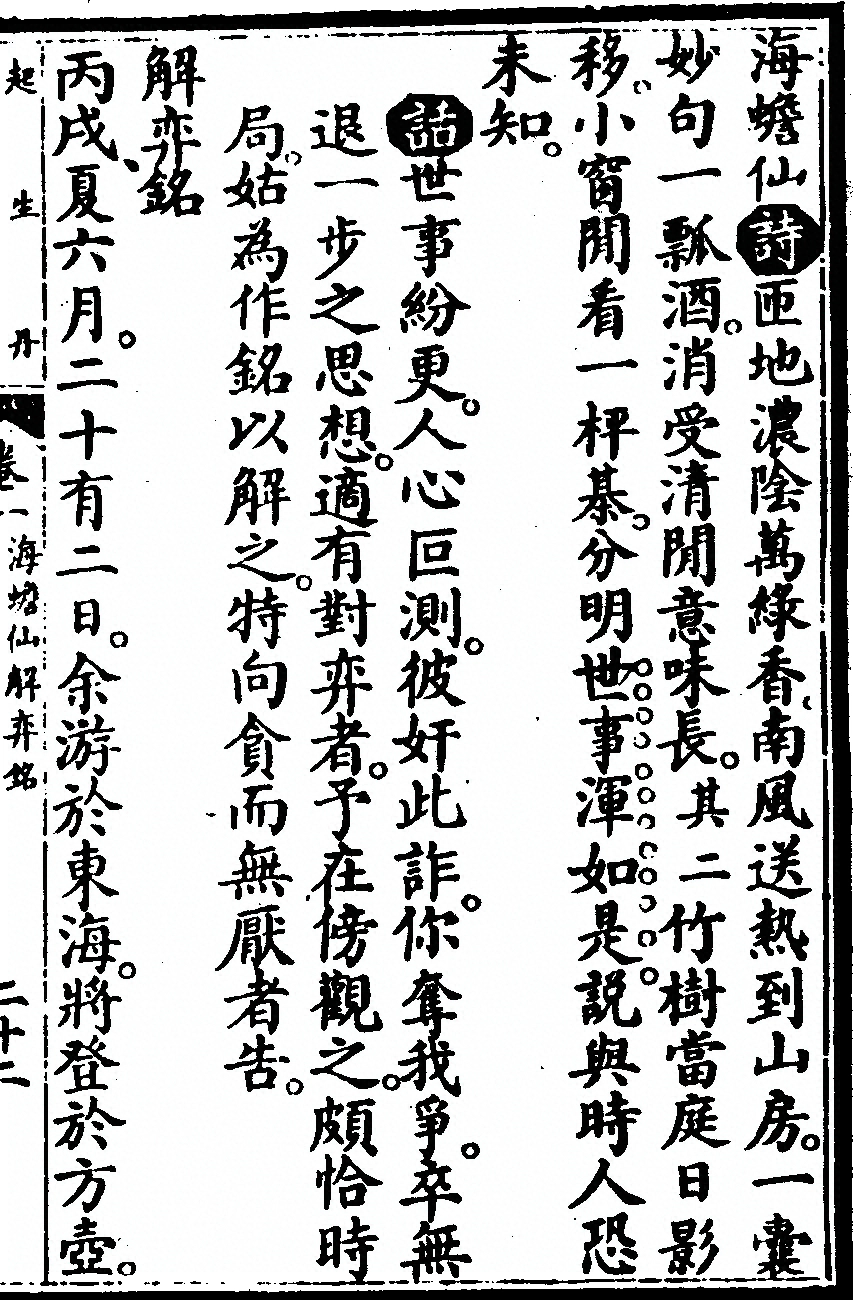 海蟾仙詩匝地濃陰萬緣香南風送熱到山房。一囊
妙句一瓢酒。消受清閒意味長。其二竹樹當庭日影
移。小窗閒看一枰棊。分明世事渾如是。說與時人恐
未知。
話世事紛更。人心叵測。彼奸此詐。你奪我爭。卒無
退一步之思想。適有對弈者。予在傍觀之。頗恰時
局。姑為作銘以解之。特向貪而無厭者告。
解弈銘
丙戌夏六月。二十有二日。余游於東海。將登於方壺。
起生丹
卷一海蟾仙解弈銘
二十二